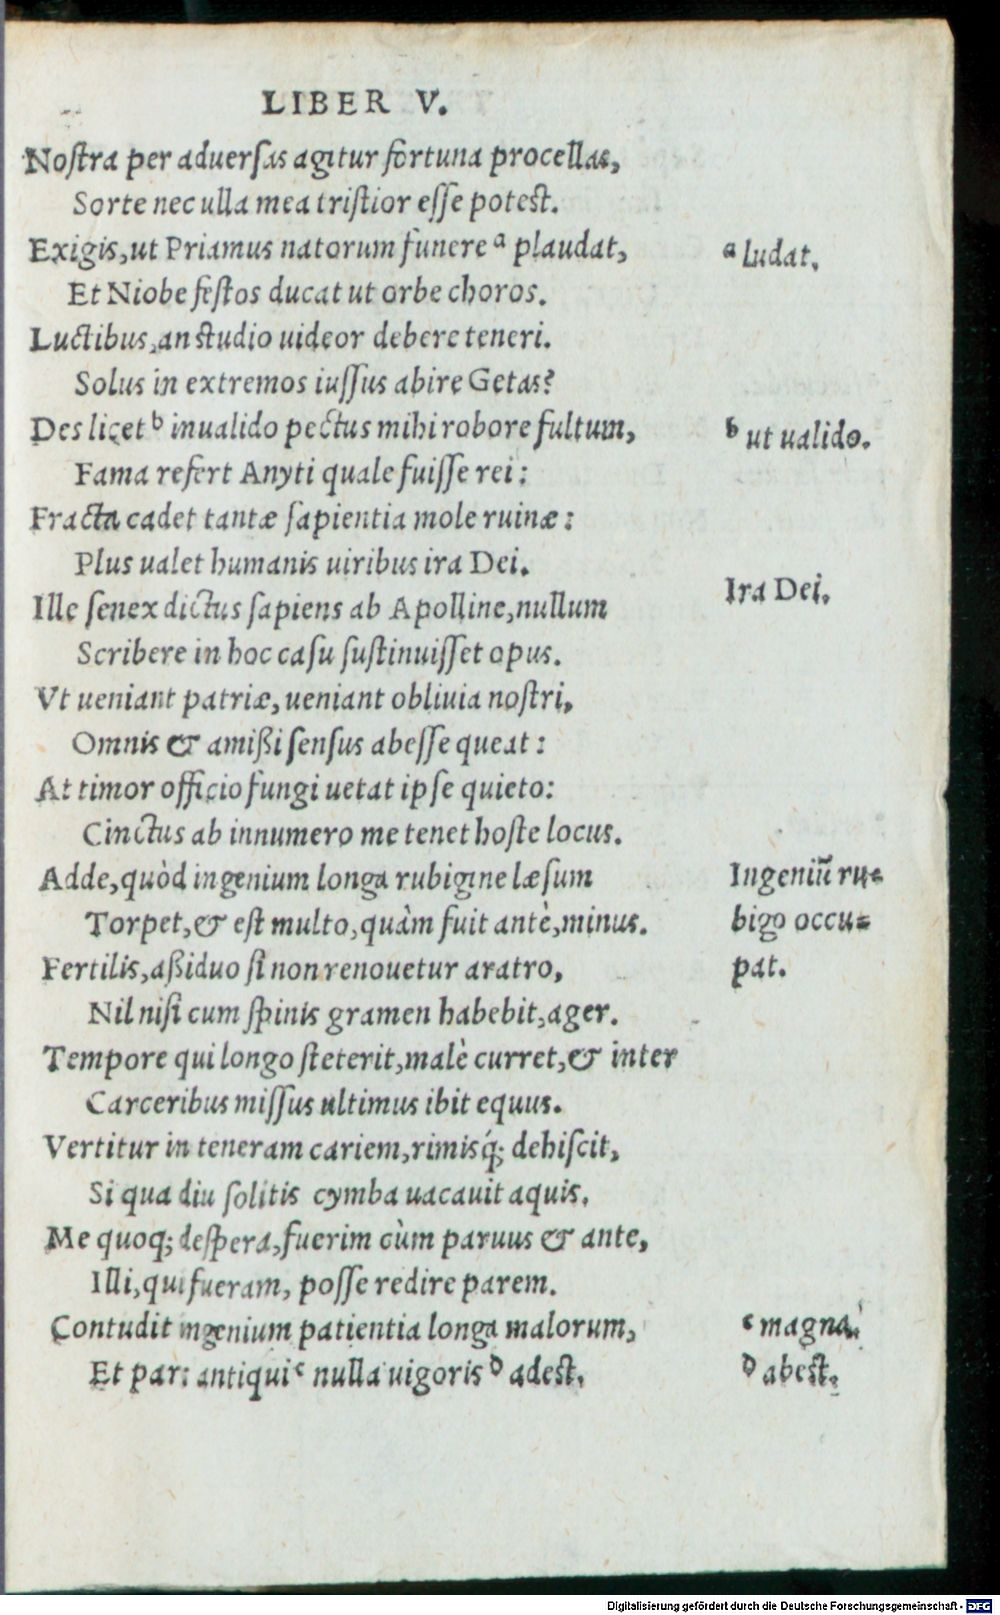 LIBER V.
Nostra per aduersas agitur fortuna procellas,
Sorte nec ulla mea tristior esse potest.
Exigis, ut Priamus natorum funere ᵃ plaudat,
ᵃ ludat.
Et Niobe festos ducat ut orbe choros.
Luctibus, an studio uideor debere teneri.
Solus in extremos iussus abire Getas?
Des licet ᵇ inualido pectus mihi robore fultum,
ᵇ ut ualido.
Fama refert Anyti quale fuisse rei:
Fracta cadet tantæ sapientia mole ruinæ:
Plus ualet humanis uiribus ira Dei.
Ira Dei.
Ille senex dictus sapiens ab Apolline, nullum
Scribere in hoc casu sustinuisset opus.
Vt ueniant patriæ, ueniant obliuia nostri,
Omnis & amißi sensus abesse queat:
At timor officio fungi uetat ipse quieto:
Cinctus ab innumero me tenet hoste locus.
Adde, quòd ingenium longa rubigine læsum
Ingeniũ ru-
Torpet, & est multo, quàm fuit antè, minus.
bigo occu-
Fertilis, aßiduo si non renouetur aratro,
pat.
Nil nisi cum spinis gramen habebit, ager.
Tempore qui longo steterit, malè curret, & inter
Carceribus missus ultimus ibit equus.
Vertitur in teneram cariem, rimisq́; dehiscit,
Si qua diu solitis cymba uacauit aquis.
Me quoq; despera, fuerim cùm paruus & ante,
Illi, qui fueram, posse redire parem.
Contudit ingenium patientia longa malorum,
ᶜ magna.
Et pars antiqui ᶜ nulla uigoris ᵈ adest.
ᵈ abest.
Digitalisierung gefördert durch die Deutsche Forschungsgemeinschaft - DFG